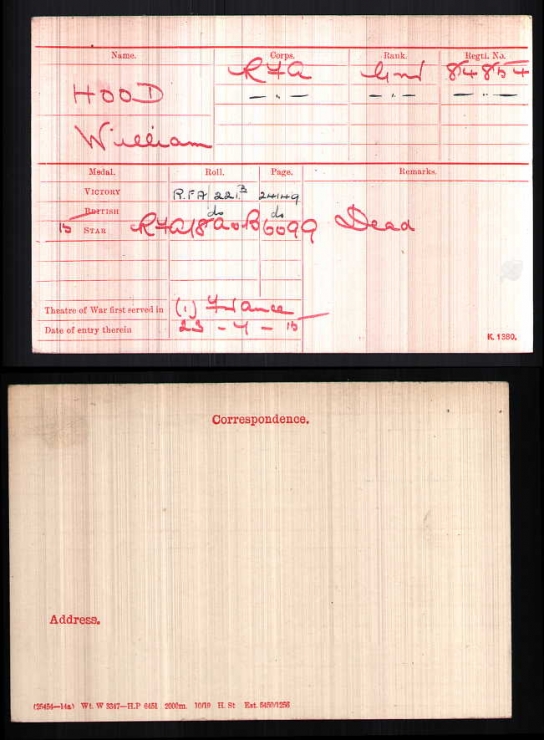 Name. Corps. Rank. Regtl. No.
RFA Gnr 84854
HOOD — " — — " — — " —
William
Medal. Roll. Page. Remarks.
VICTORY R.F.A 221B 24149
BRITISH do do
15 STAR RFA/18 B 6099 Dead
Theatre of War first served in (1) France
Date of entry therein 23 - 4 - 15
K. 1380.
Correspondence.
Address.
Wt. W 5347—H.P 6451 2000m. 10/19 H. St